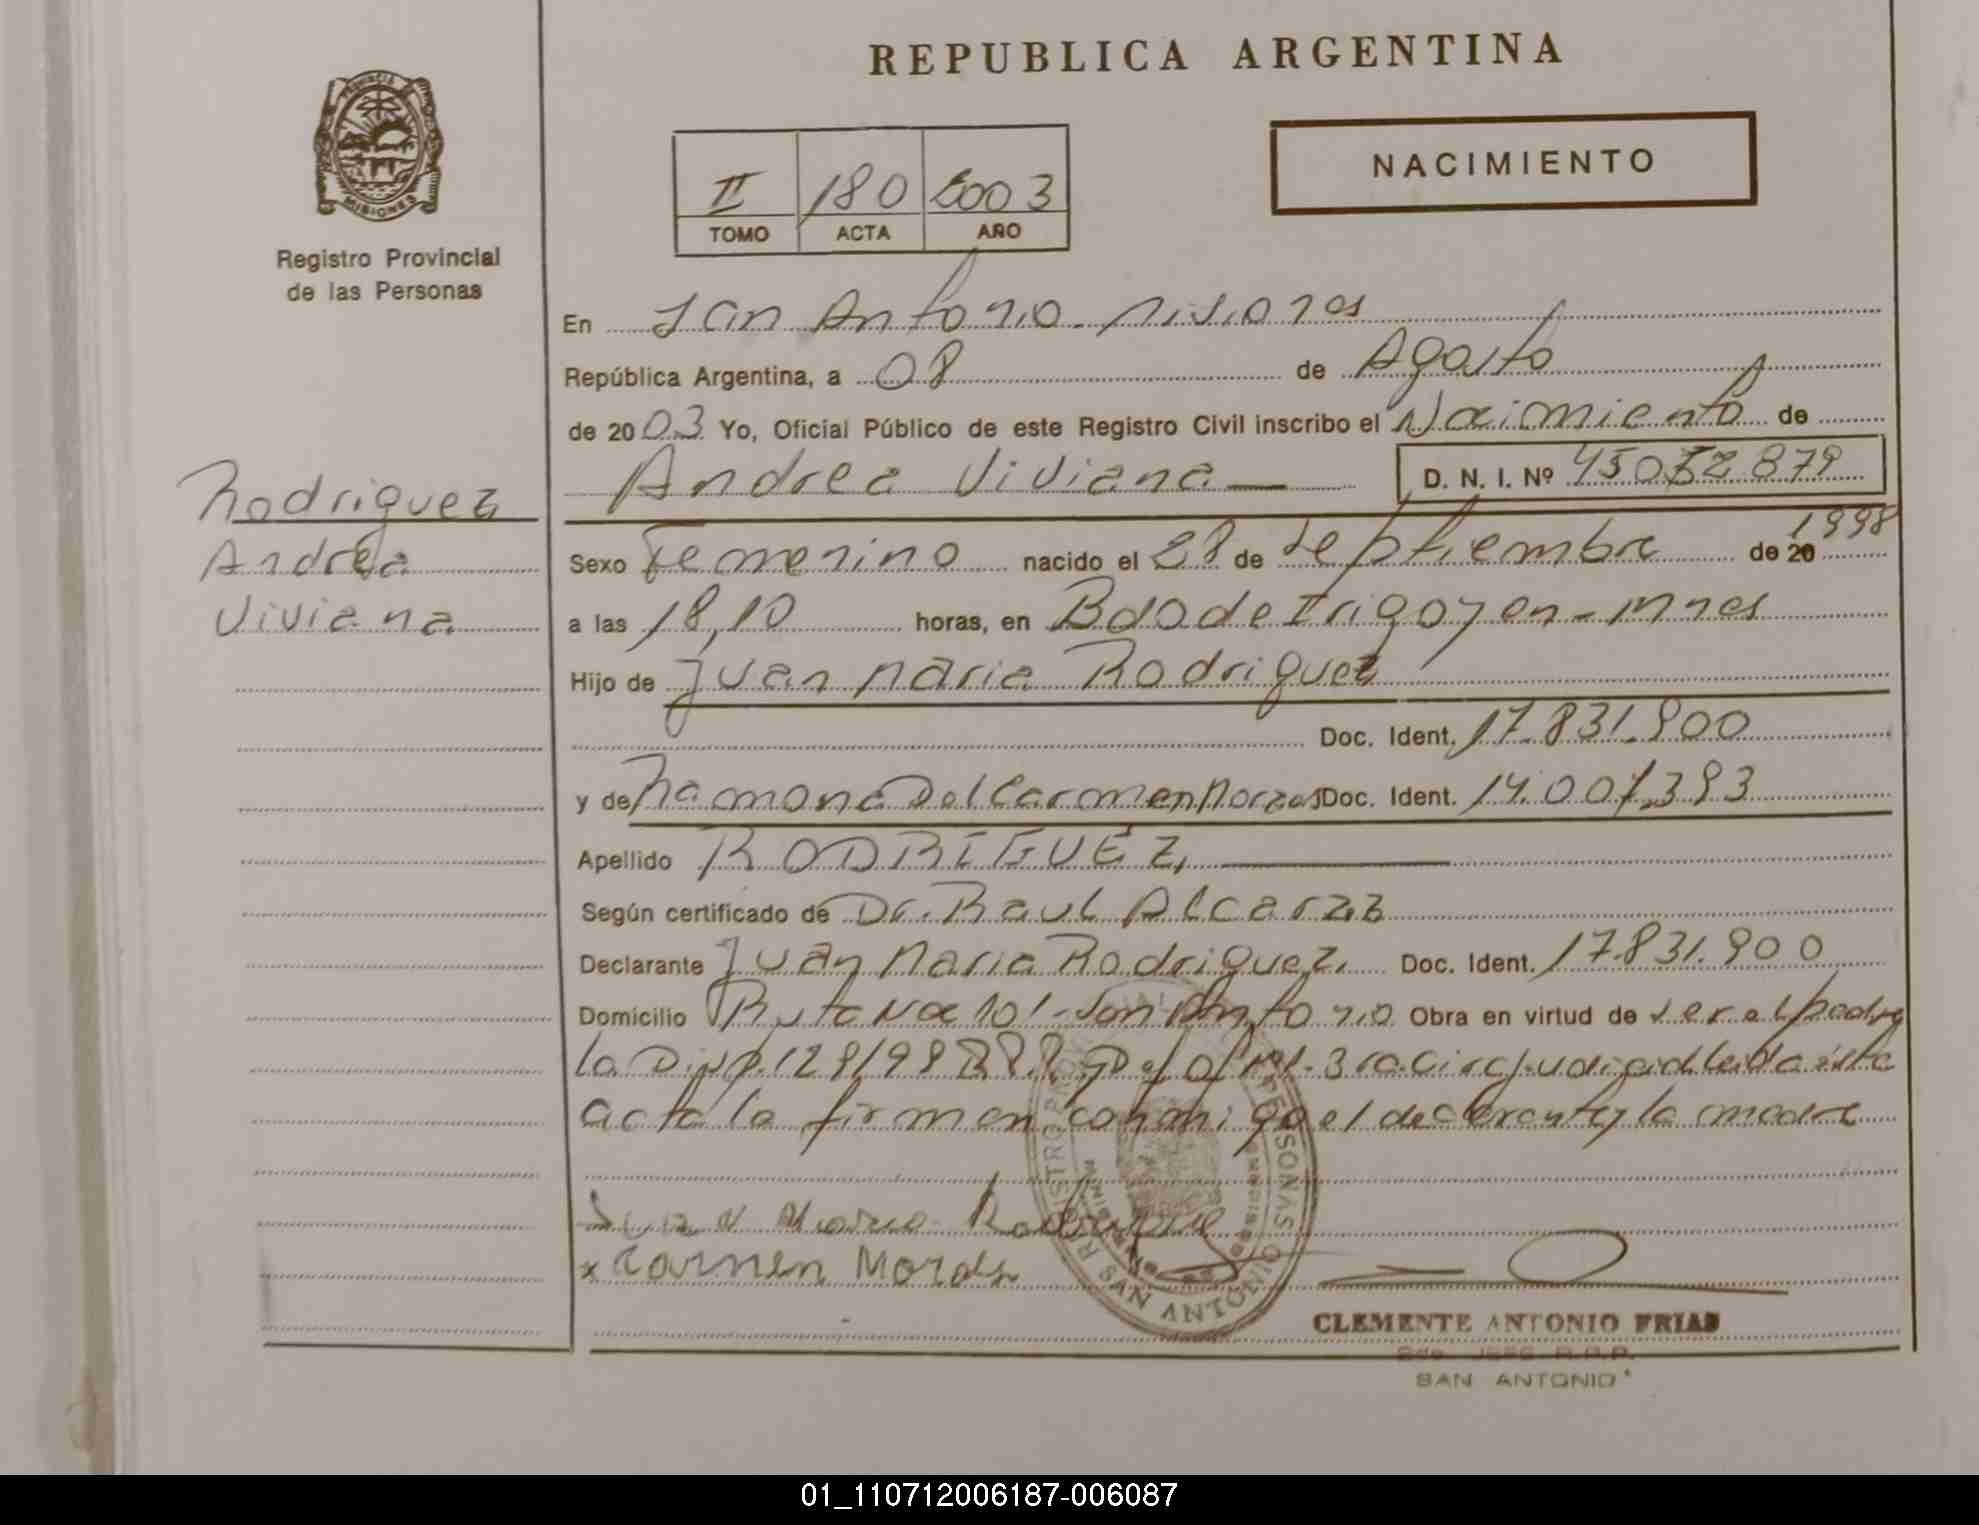 REPUBLICA ARGENTINA
PROVINCIA DE
MISIONES
Registro Provincial
de las Personas
NACIMIENTO
II 180 2003
TOMO ACTA AÑO
En San Antonio - Misiones
República Argentina, a 08 de Agosto
de 2003 Yo, Oficial Público de este Registro Civil inscribo el Nacimiento de
Andrea Viviana — D. N. I. Nº 45052879
Rodriguez
Andrea
Viviana
Sexo Femenino nacido el 28 de Septiembre de 20 1998
a las 18,10 horas, en Bdo de Irigoyen - Mnes
Hijo de Juan Maria Rodriguez
Doc. Ident. 17.831.900
y de Ramona Del Carmen Morzas Doc. Ident. 14.007.393
Apellido RODRIGUEZ,
Según certificado de Dr. Raul Alcaraz
Declarante Juan Maria Rodriguez. Doc. Ident. 17.831.900
Domicilio Ruta Nac 101 - San Antonio Obra en virtud de ser el padre
la Disp. 128/98 3ra. Circ. Judicial leida esta
acta la firman conmigo el declarante y la madre
Juan Maria Rodrigue
x Carmen Morais
REGISTRO PERSONAS
MISIONES
SAN ANTONIO
CLEMENTE ANTONIO FRIAS
2do JEFE R.P.P.
SAN ANTONIO
01_110712006187-006087